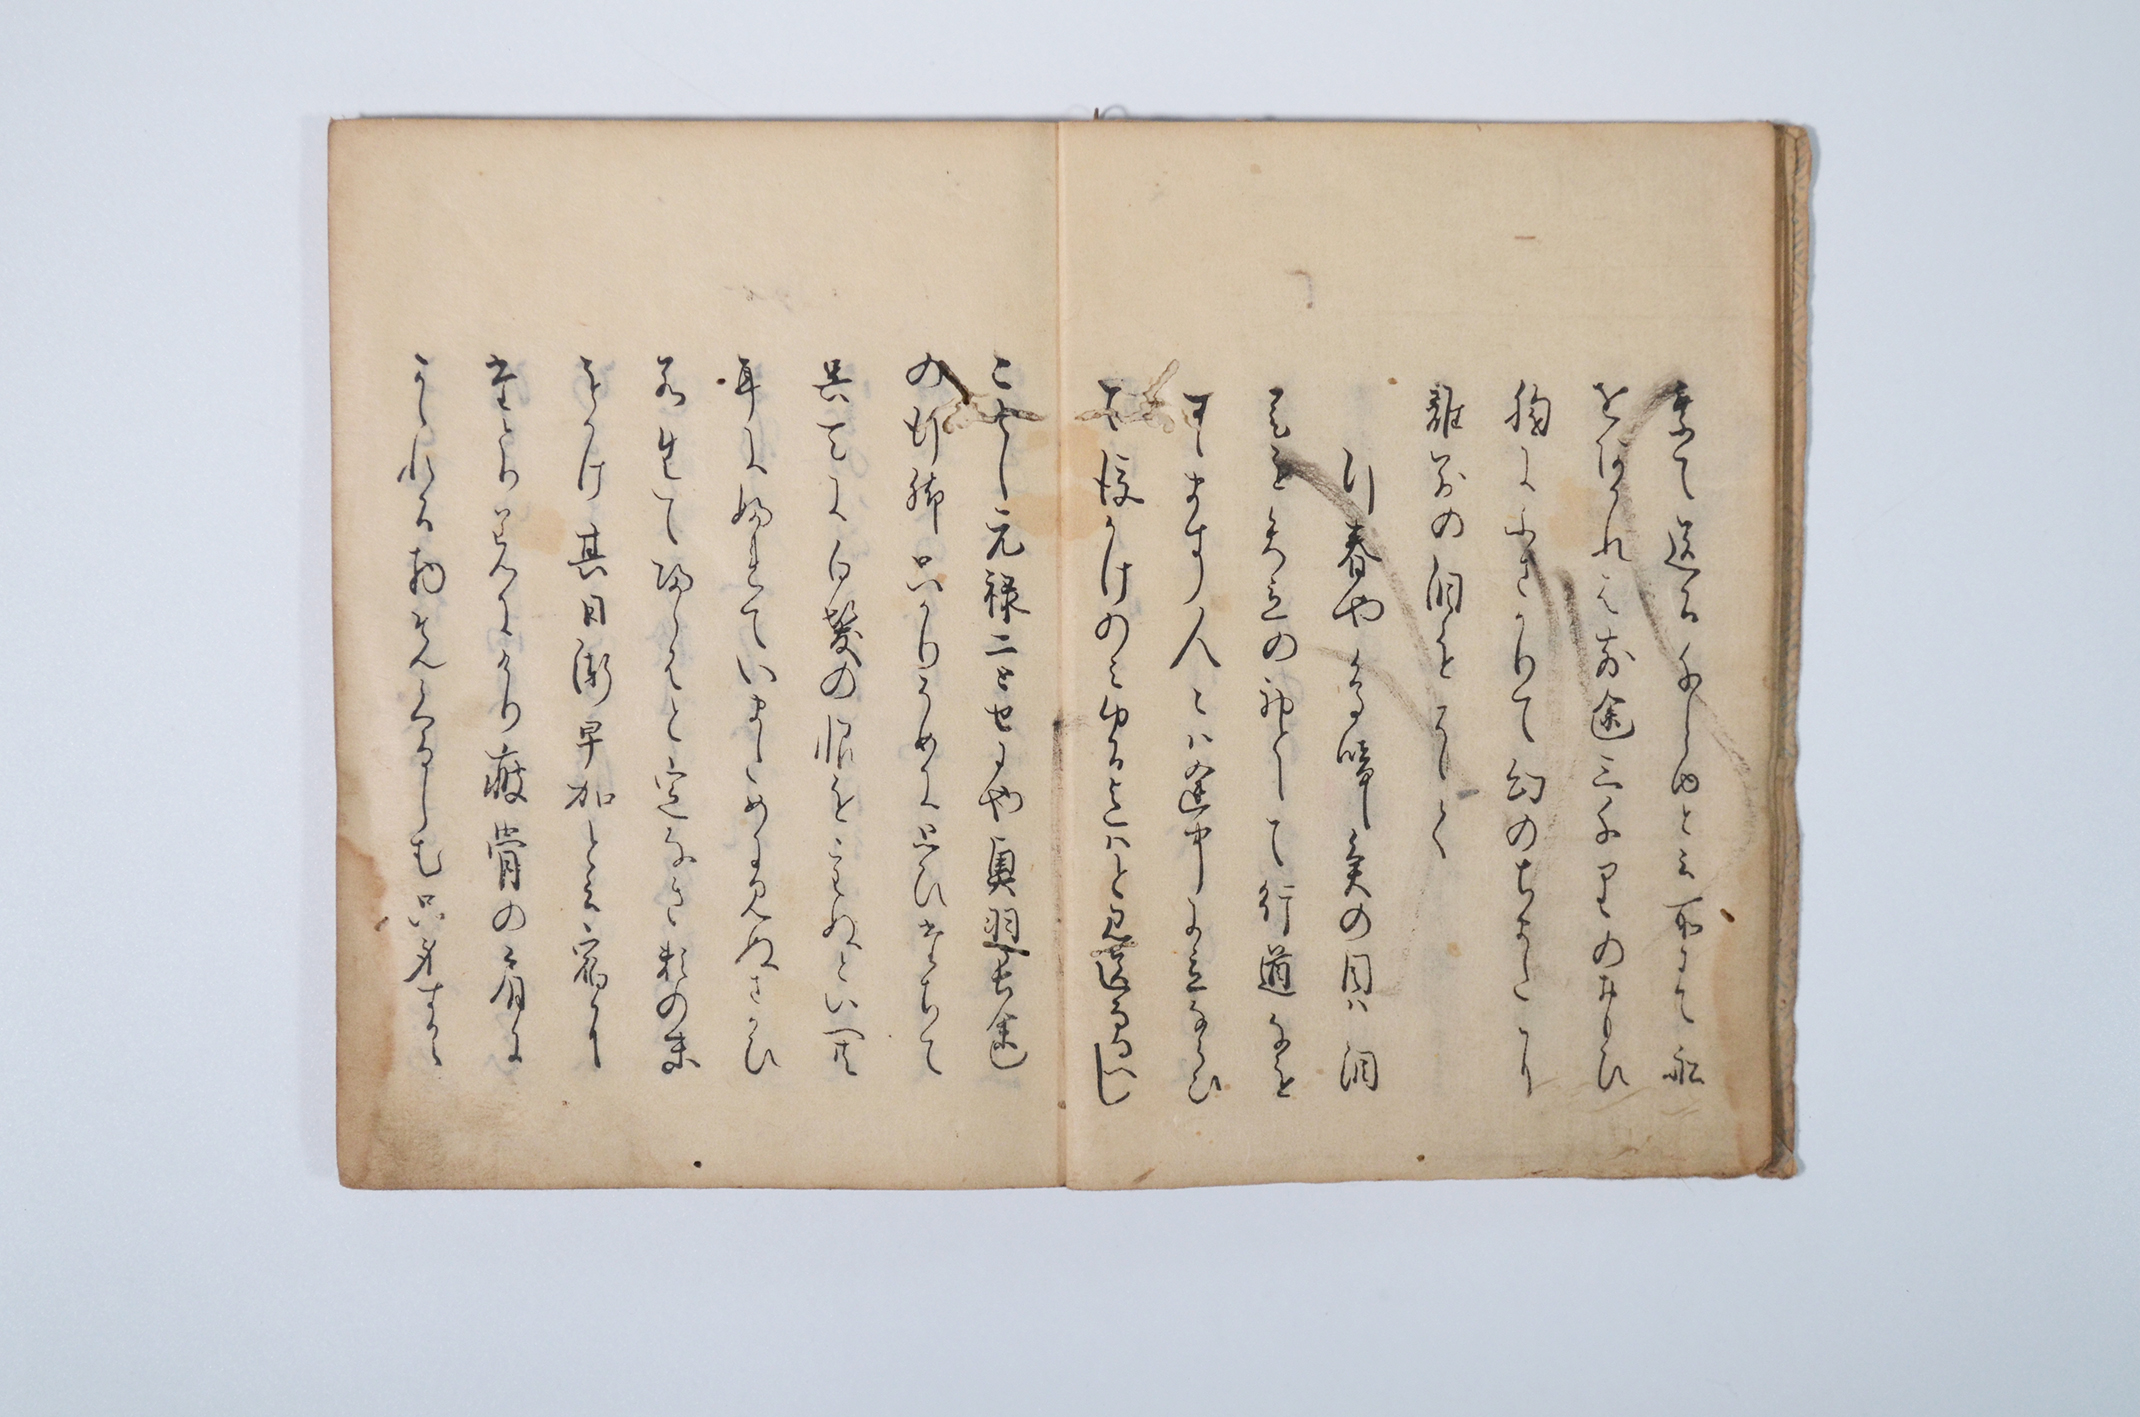 乗て送る千しゆと云所にて舩
をあかれは前途三千里のおもひ
胸にふさかりて幻のちまたに
離別の泪をそゝく
行春や鳥啼魚の目ハ泪
是を矢立の初として行道なを
すゝます人々ハ途中に立ならひ
て後かけのみゆる迄ハと見送なるへし
ことし元禄二とせにや奥羽長途
の行脚只かりそめに思ひたちて
呉天に白髪の恨を重ぬといへ共
耳にふれていまために見ぬさかひ
若生て帰らはと定なき頼の末
をかけ其日漸早加と云宿に
たとり着にけり痩骨の肩に
かゝれる物先くるしむ只身すから